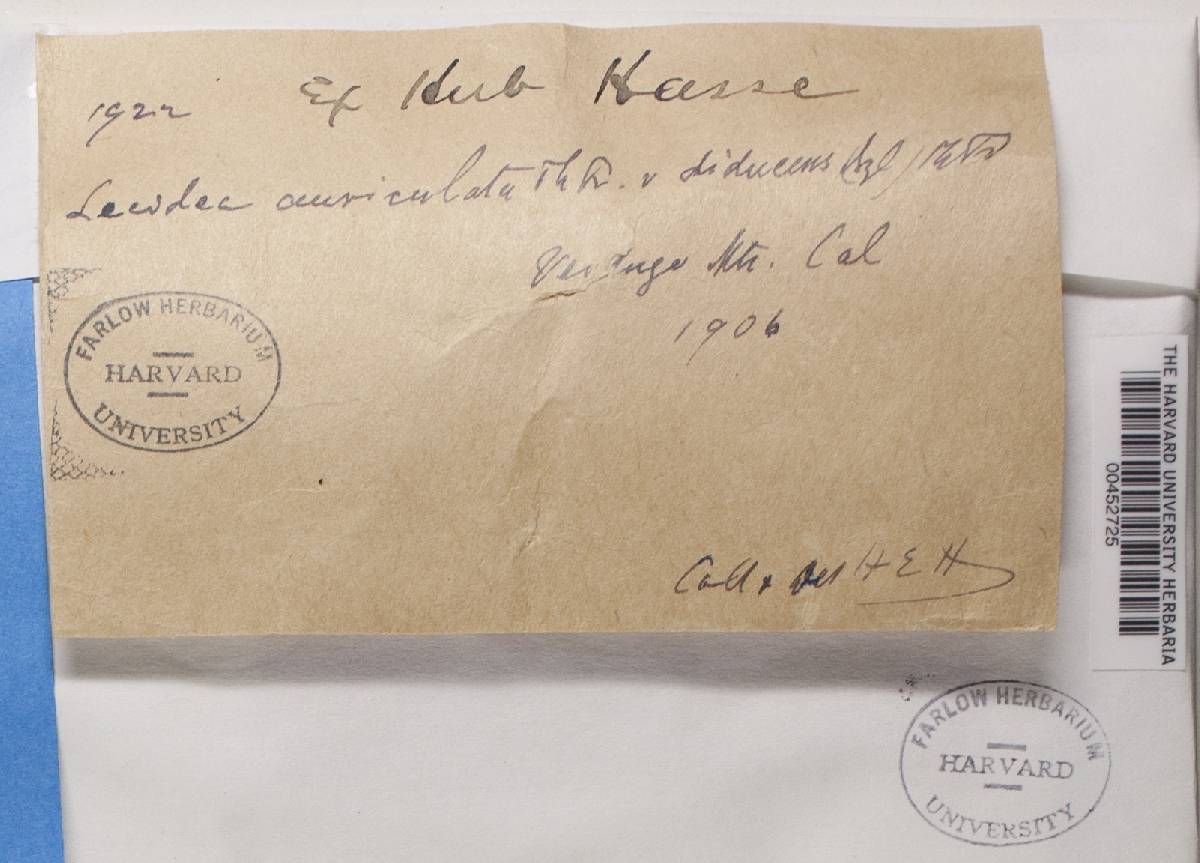 1922 Ex Herb Hasse
Lecidea auriculata Th Fr. v diducens (Nyl) Th Fr
Verdugo Mts. Cal
1906
FARLOW HERBARIUM
HARVARD
UNIVERSITY
Coll & Det H E H
THE HARVARD UNIVERSITY HERBARIA
00452725
FARLOW HERBARIUM
HARVARD
UNIVERSITY